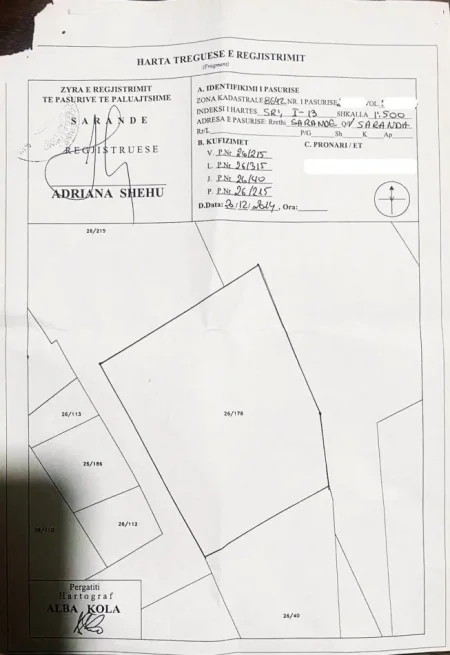 HARTA TREGUESE E REGJISTRIMIT
(Fragment)
ZYRA E REGJISTRIMIT
TE PASURIVE TE PALUAJTSHME
SARANDE
REGJISTRUESE
ADRIANA SHEHU
A. IDENTIFIKIMI I PASURISE
ZONA KADASTRALE 8642 NR. I PASURISE VOL.
INDEKSI I HARTES SHKALLA 1:500
ADRESA E PASURISE: Rrethi SARANDE SARANDA
Rr/L P/G Sh K Ap
B. KUFIZIMET
C. PRONARI / ET
V. P.Nr 26/215
L. P.Nr 26/315
J. P.Nr 26/40
P. P.Nr 26/215
D.Data: 26/12/2014, Ora:
26/215
26/178
26/113
26/186
26/112
26/110
26/40
Pergatiti
Hartograf
ALBA KOLA